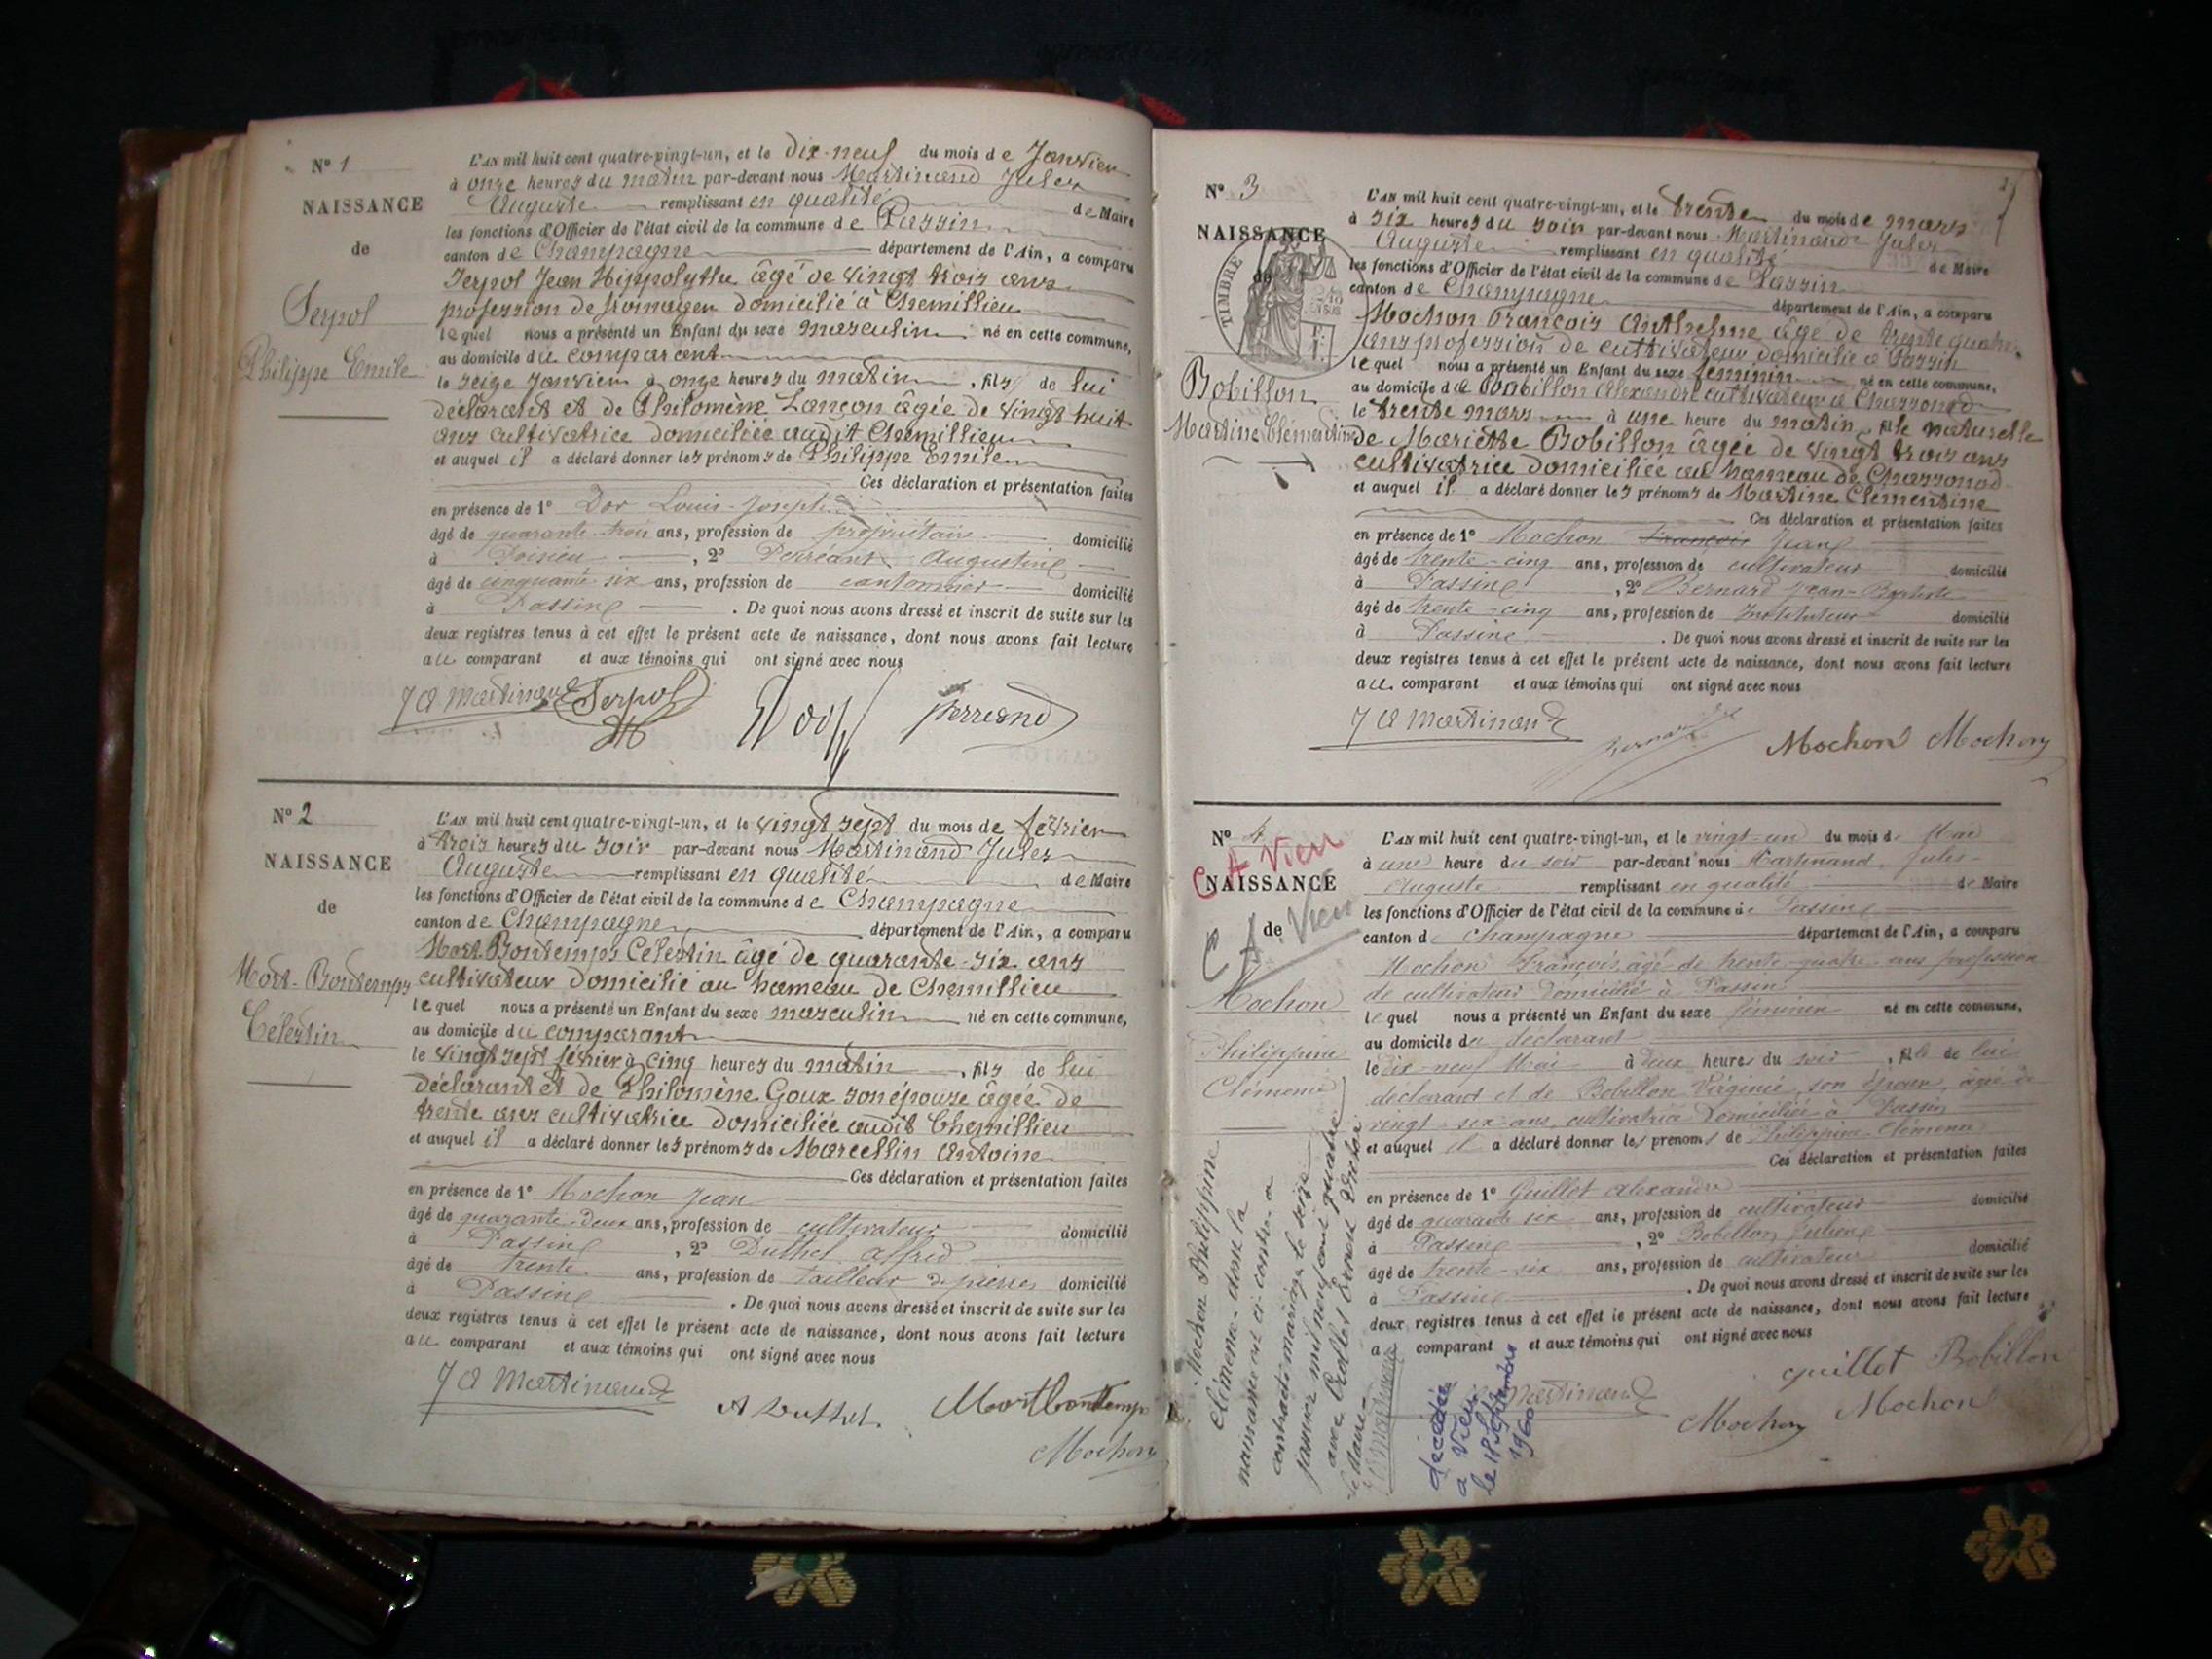 Nº 1
NAISSANCE
de
Serpol
Philippe Emile
L'AN mil huit cent quatre-vingt-un, et le dix-neuf du mois de Janvier
à onze heures du matin par-devant nous Martinand Jules
Auguste remplissant en qualité de Maire
les fonctions d'Officier de l'état civil de la commune de Passin
canton de Champagne département de l'Ain, a comparu
Serpol Jean Hippolythe âgé de vingt trois ans
profession de fromager domicilié à Chemillieu
lequel nous a présenté un Enfant du sexe masculin né en cette commune,
au domicile du comparant
le seize Janvier à onze heures du matin, fils de lui
déclarant et de Philomène Lançon âgée de vingt huit
ans cultivatrice domiciliée audit Chemillieu
et auquel il a déclaré donner les prénoms de Philippe Emile
Ces déclaration et présentation faites
en présence de 1º Dor Louis-Joseph
âgé de quarante-trois ans, profession de propriétaire domicilié
à Poisieu, 2º Perreant Augustin
âgé de cinquante six ans, profession de cantonnier domicilié
à Passin. De quoi nous avons dressé et inscrit de suite sur les
deux registres tenus à cet effet le présent acte de naissance, dont nous avons fait lecture
au comparant et aux témoins qui ont signé avec nous
J A Martinand Serpol Perreand
Nº 2
NAISSANCE
de
Mort-Bontemps
Célestin
L'AN mil huit cent quatre-vingt-un, et le vingt sept du mois de février
à trois heures du soir par-devant nous Martinand Jules
Auguste remplissant en qualité de Maire
les fonctions d'Officier de l'état civil de la commune de Champagne
canton de Champagne département de l'Ain, a comparu
Mort Bontemps Célestin âgé de quarante-six ans
cultivateur domicilié au hameau de Chemillieu
lequel nous a présenté un Enfant du sexe masculin né en cette commune,
au domicile du comparant
le vingt sept février à cinq heures du matin, fils de lui
déclarant et de Philomène Goux son épouse âgée de
trente ans cultivatrice domiciliée audit Chemillieu
et auquel il a déclaré donner les prénoms de Marcellin Antoine
Ces déclaration et présentation faites
en présence de 1º Mochon Jean
âgé de quarante-deux ans, profession de cultivateur domicilié
à Passin, 2º Duthel Alfred
âgé de trente ans, profession de tailleur de pierres domicilié
à Passin. De quoi nous avons dressé et inscrit de suite sur les
deux registres tenus à cet effet le présent acte de naissance, dont nous avons fait lecture
au comparant et aux témoins qui ont signé avec nous
J A Martinand A Duthel. Mortbontemps
Mochon
2
Nº 3
NAISSANCE
de
TIMBRE
Bobillon
Martine Clémentine
L'AN mil huit cent quatre-vingt-un, et le trente du mois de mars
à six heures du soir par-devant nous Martinand Jules
Auguste remplissant en qualité de Maire
les fonctions d'Officier de l'état civil de la commune de Passin
canton de Champagne département de l'Ain, a comparu
Mochon François Anthelme âgé de trente quatre
ans profession de cultivateur domicilié à Passin
lequel nous a présenté un Enfant du sexe féminin né en cette commune,
au domicile de Bobillon Alexandre cultivateur à Chassonod
le trente mars à une heure du matin, fille naturelle
de Mariette Bobillon âgée de vingt trois ans
cultivatrice domiciliée au hameau de Chassonod
et auquel il a déclaré donner les prénoms de Martine Clémentine
Ces déclaration et présentation faites
en présence de 1º Mochon François Jean
âgé de trente-cinq ans, profession de cultivateur domicilié
à Passin, 2º Bernard Jean-Baptiste
âgé de trente-cinq ans, profession de Instituteur domicilié
à Passin. De quoi nous avons dressé et inscrit de suite sur les
deux registres tenus à cet effet le présent acte de naissance, dont nous avons fait lecture
au comparant et aux témoins qui ont signé avec nous
J A Martinand Bernard Mochon Mochon
Nº 4
C A Vieu
NAISSANCE
de Vieu
Mochon
Philippine
Clémence
L'AN mil huit cent quatre-vingt-un, et le vingt-un du mois de Mai
à une heure du soir par-devant nous Martinand Jules
Auguste remplissant en qualité de Maire
les fonctions d'Officier de l'état civil de la commune de Passin
canton de Champagne département de l'Ain, a comparu
Mochon François, âgé de trente-quatre ans profession
de cultivateur domicilié à Passin
lequel nous a présenté un Enfant du sexe féminin né en cette commune,
au domicile du déclarant
le dix-neuf Mai à deux heures du soir, fille de lui
déclarant et de Bobillon Virginie, son épouse, âgée de
vingt-six ans, cultivatrice domiciliée à Passin
et auquel il a déclaré donner les prénoms de Philippine Clémence
Ces déclaration et présentation faites
en présence de 1º Guillet Alexandre
âgé de quarante six ans, profession de cultivateur domicilié
à Passin, 2º Bobillon Julien
âgé de trente-six ans, profession de cultivateur domicilié
à Passin. De quoi nous avons dressé et inscrit de suite sur les
deux registres tenus à cet effet le présent acte de naissance, dont nous avons fait lecture
a comparant et aux témoins qui ont signé avec nous
guillet Bobillon
Martinand Mochon Mochon
Mochon Philippine
Clémence dont la
naissance est ci-contre a
contracté mariage le seize
janvier mil neuf cent quatre
avec Ernest Victor
Le Maire
décédée
a Vieu
le 18 septembre
1960